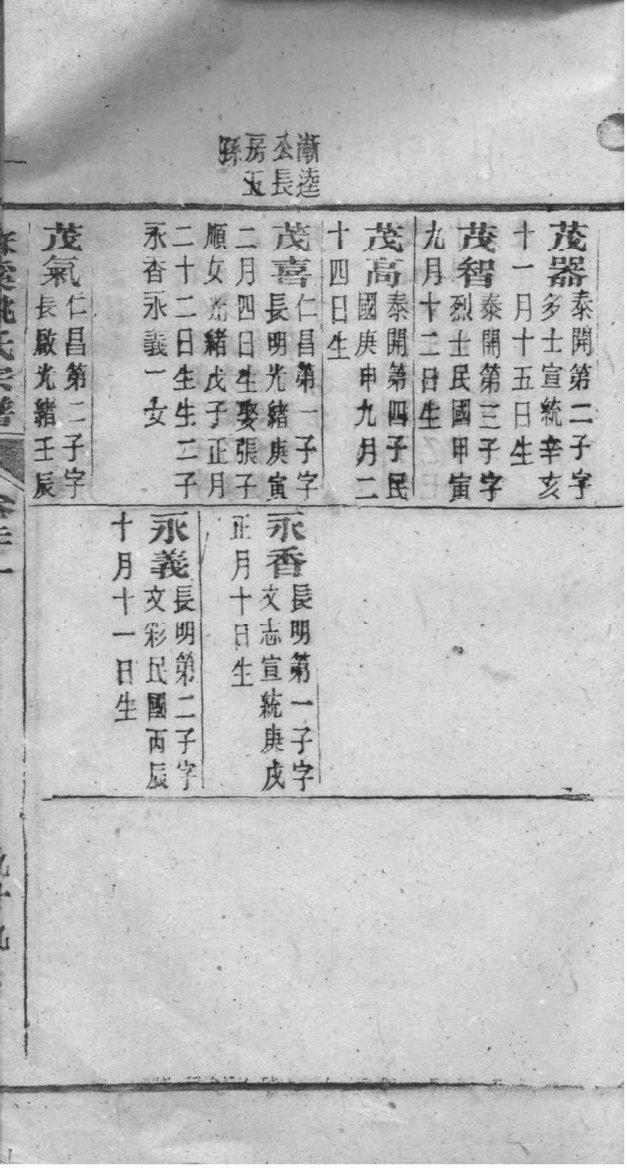 漸逵
公長
房五
孫
茂器
泰開第二子字
多士宣統辛亥
十一月十五日生
茂智
泰開第三子字
烈士民國甲寅
九月十二日生
茂高
泰開第四子民
國庚申九月二
十四日生
茂喜
仁昌第一子字
長明光緒庚寅
二月四日生娶張子
順女光緒戊子正月
二十二日生生二子
永香永義一女
茂氣
仁昌第二子字
長啟光緒壬辰
永香
長明第一子字
文志宣統庚戌
正月十日生
永義
長明第二子字
文彩民國丙辰
十月十一日生
姚氏宗譜
九十九